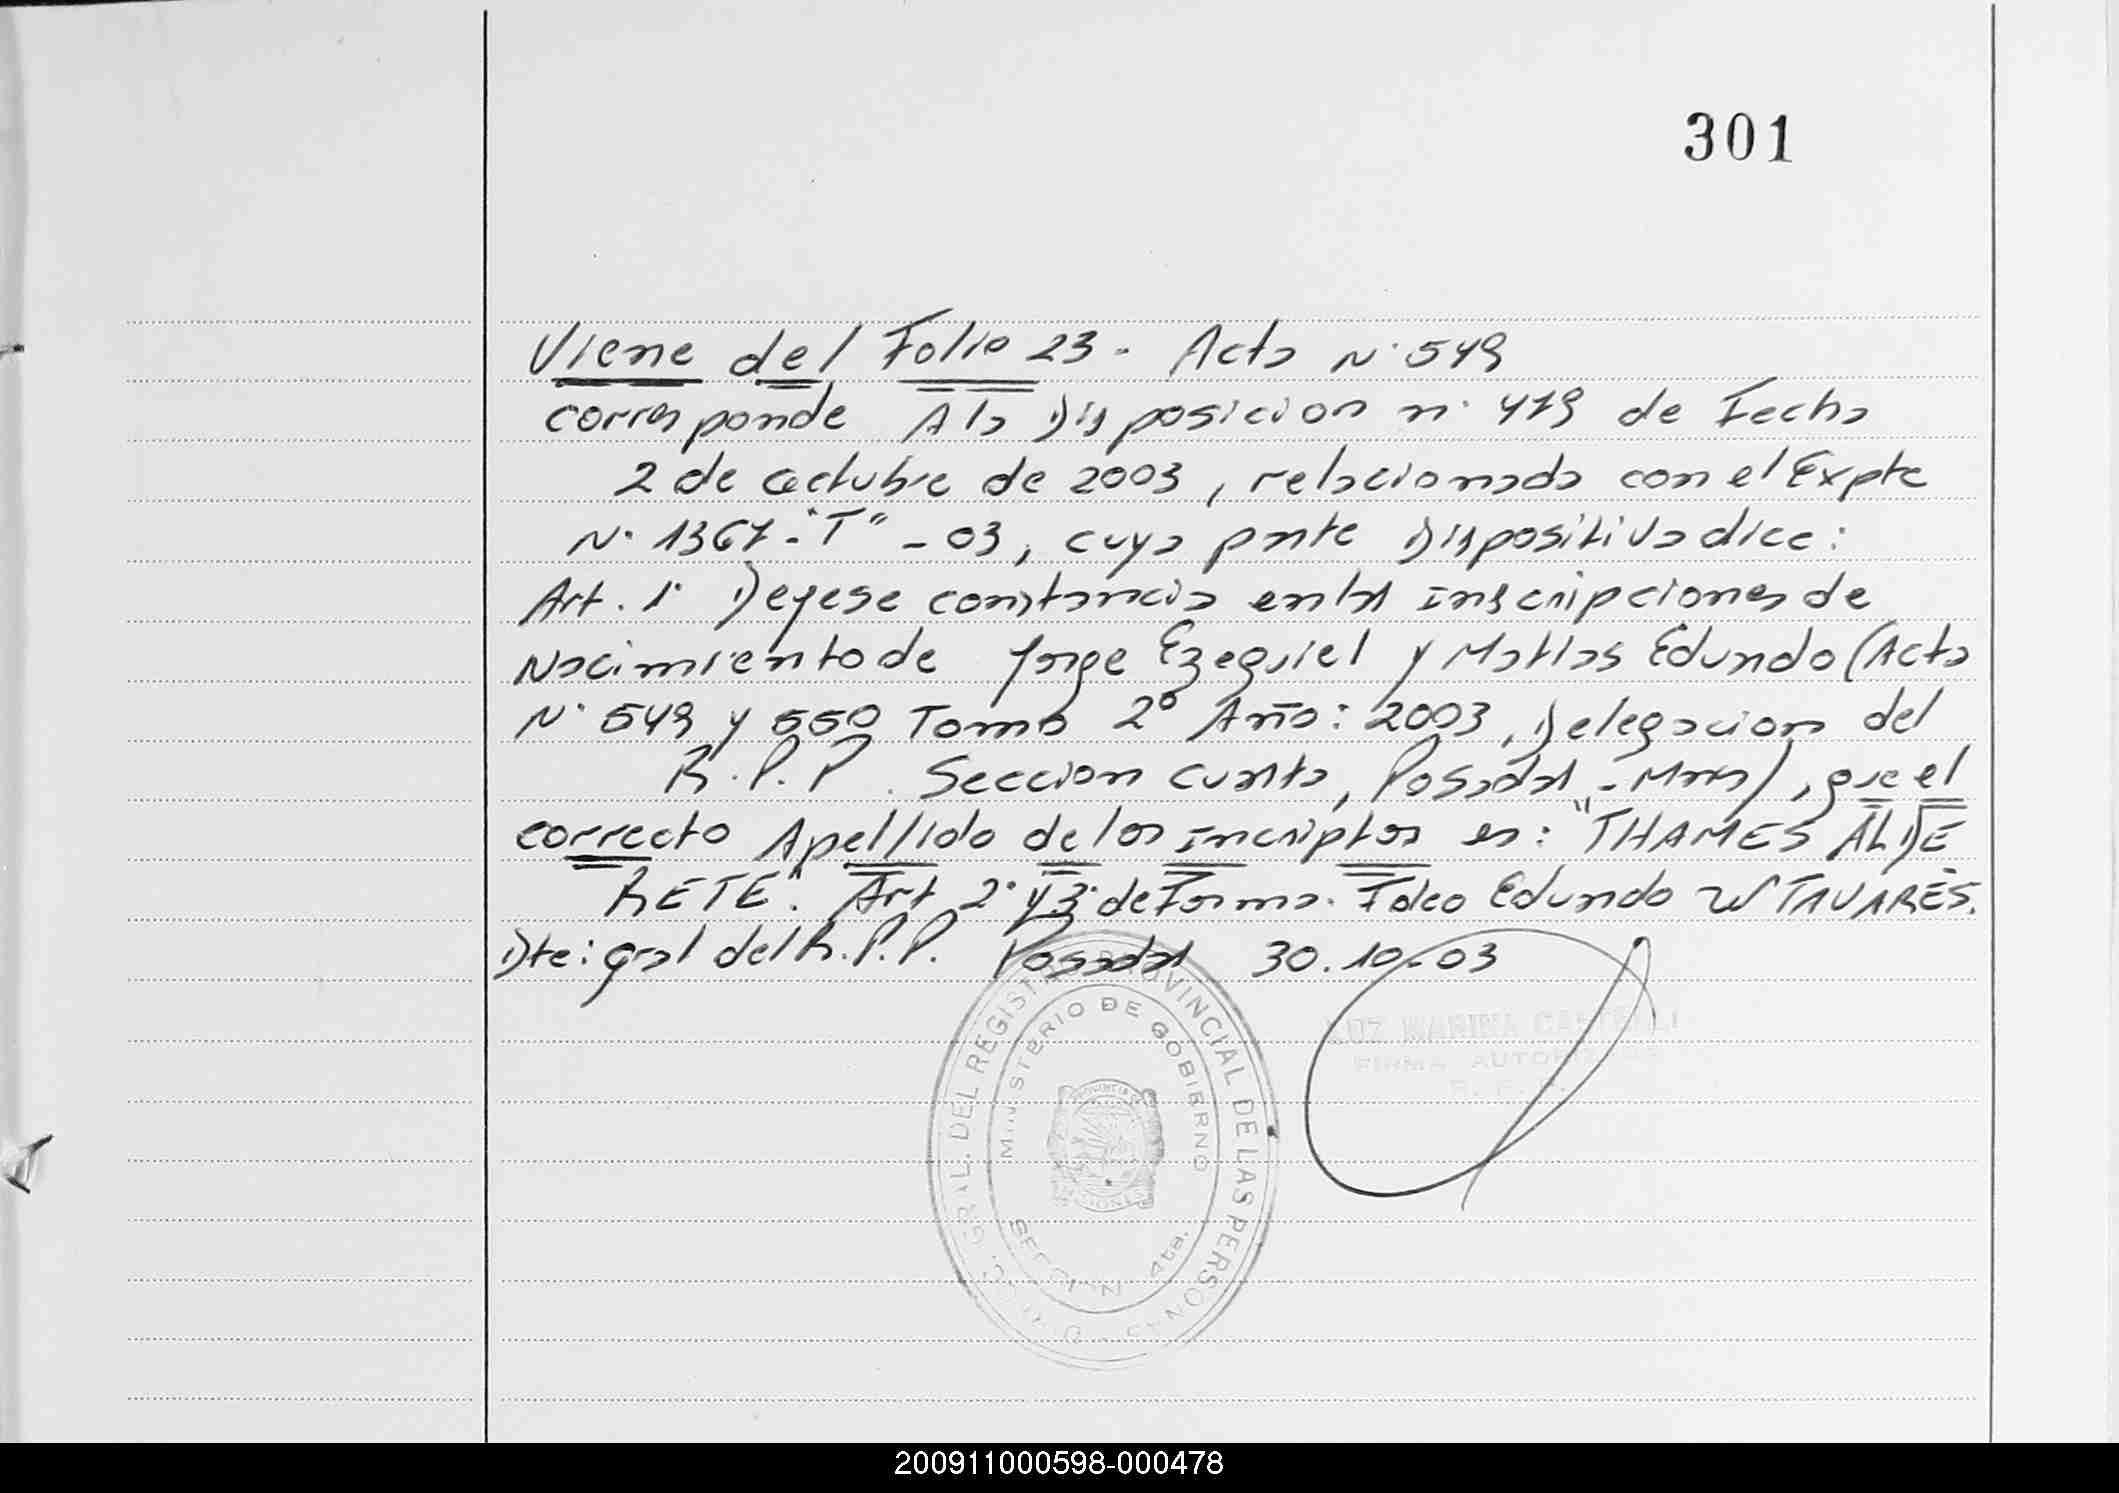 301
Viene del Folio 23 - Acta N° 549
corresponde A la Disposicion n° 479 de Fecha
2 de octubre de 2003, relacionada con el Expte
N° 1367-"T"-03, cuya parte Dispositiva dice:
Art. 1° Dejese constancia en las inscripciones de
Nacimiento de Jorge Ezequiel y Matias Edundo (Acta
N° 549 y 550 Tomo 2° Año: 2003, Delegacion del
R.P.P. Seccion cuarta, Posadas - Mnes), que el
correcto Apellido de los incriptos es: "THAMES ALDE
RETE". Art 2° y 3° de Forma. Fdco Edundo W TAVARES.
Dte: gral del R.P.P. Posadas 30.10-03
LUZ MARINA CASTELLI
FIRMA AUTORIZADA
R. P. P.
DIREC. GRAL. DEL REGISTRO PROVINCIAL DE LAS PERSONAS
MINISTERIO DE GOBIERNO
SECCION 4ta.
200911000598-000478